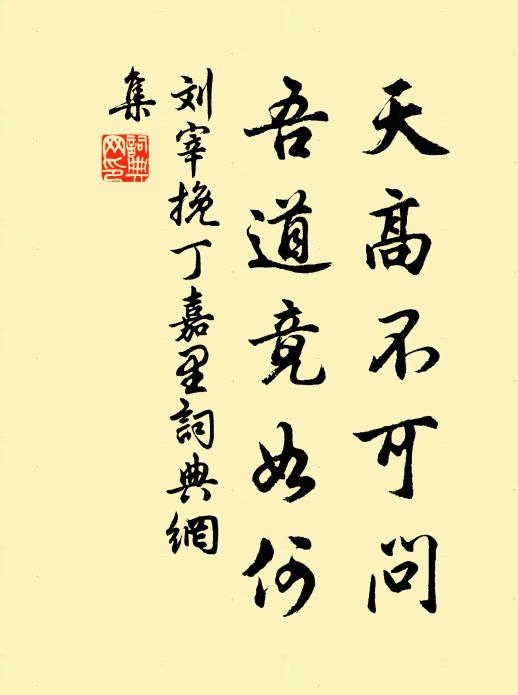 天高不可问
吾道竟如何
刘宰挽丁嘉里詞典網
集
詞典
网印